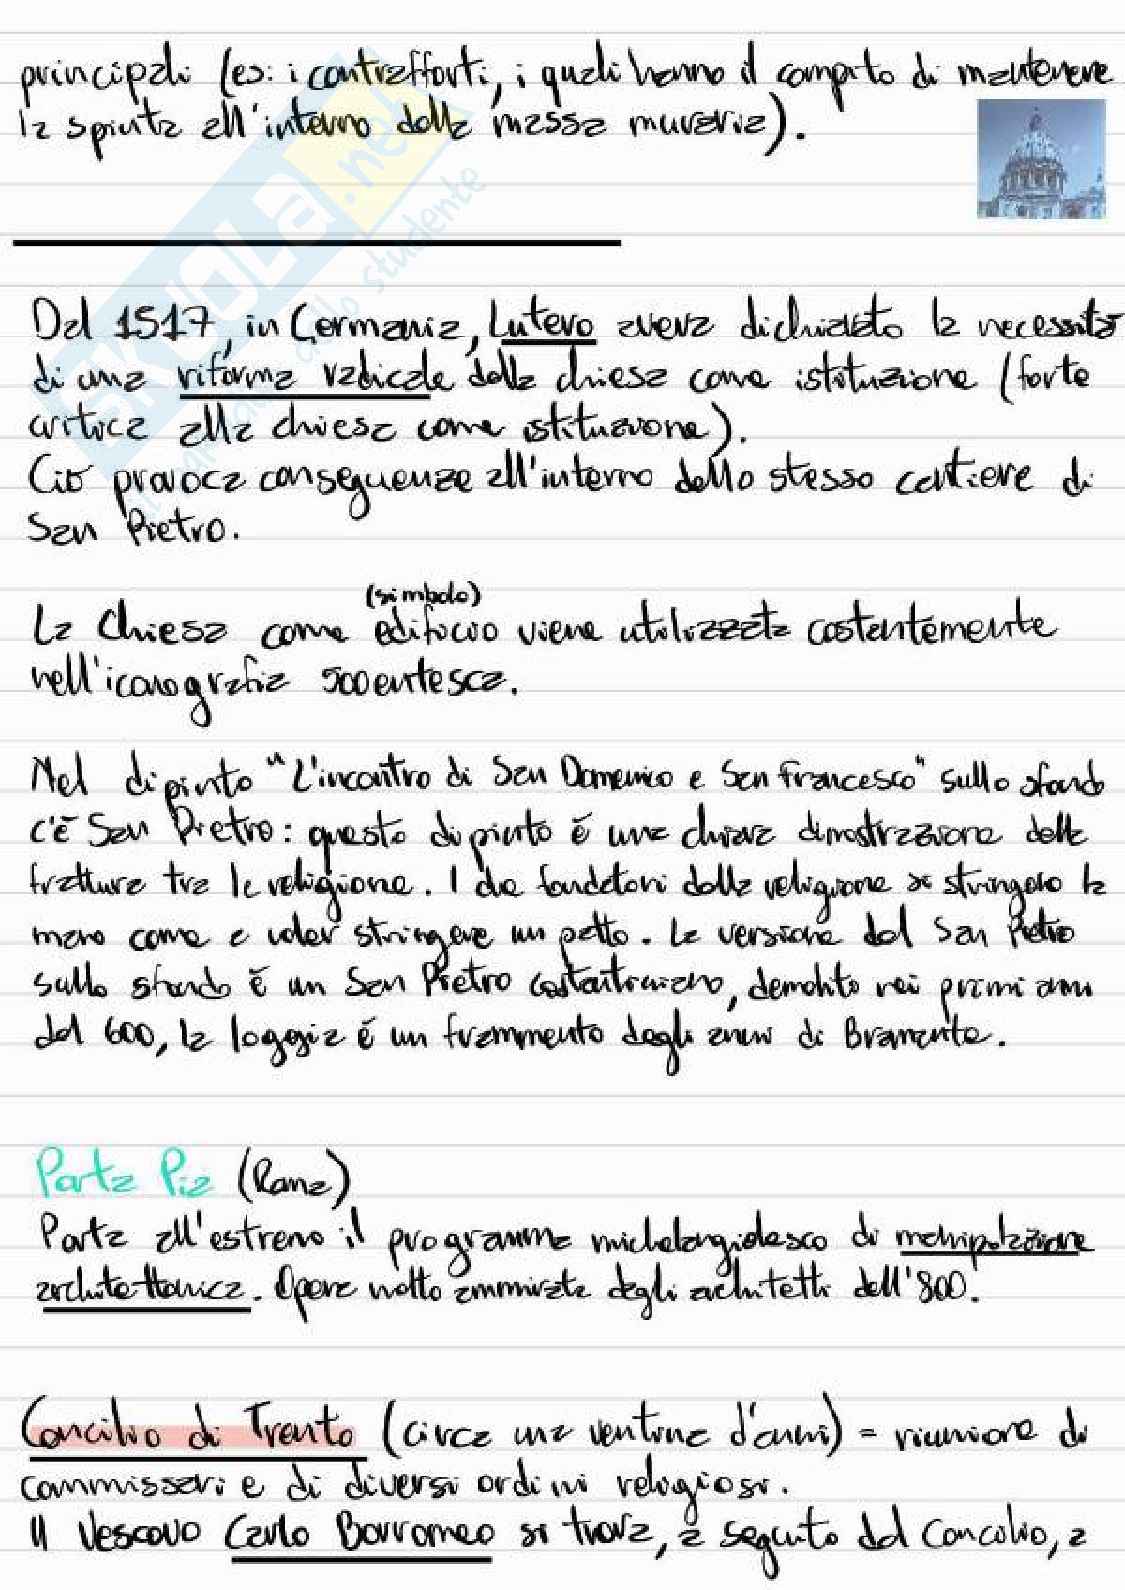 principali (es: i contrafforti, i quali hanno il compito di mantenere
la spinta all'interno della massa muraria).
SKUOLA.net
dello studente
Dal 1517, in Germania, Lutero aveva dichiarato la necessità
di una riforma radicale della chiesa come istituzione (forte
critica alla chiesa come istituzione).
Ciò provoca conseguenze all'interno dello stesso cantiere di
San Pietro.
(simbolo)
La Chiesa come edificio viene utilizzata costantemente
nell'iconografia 500entesca.
Nel dipinto "L'incontro di San Domenico e San Francesco" sullo sfondo
c'è San Pietro: questo dipinto è una chiara dimostrazione della
frattura tra le religione. I due fondatori della religione si stringono la
mano come a voler stringere un patto. La versione del San Pietro
sullo sfondo è un San Pietro costantiniano, demolito nei primi anni
del 600, la loggia è un frammento degli anni di Bramante.
Porta Pia (Roma)
Porta all'estremo il programma michelangiolesco di manipolazione
architettonica. Opera molto ammirata degli architetti dell'800.
Concilio di Trento (circa una ventina d'anni) = riunione di
commissari e di diversi ordini religiosi.
Il Vescovo Carlo Borromeo si trova, a seguito del Concilio, a